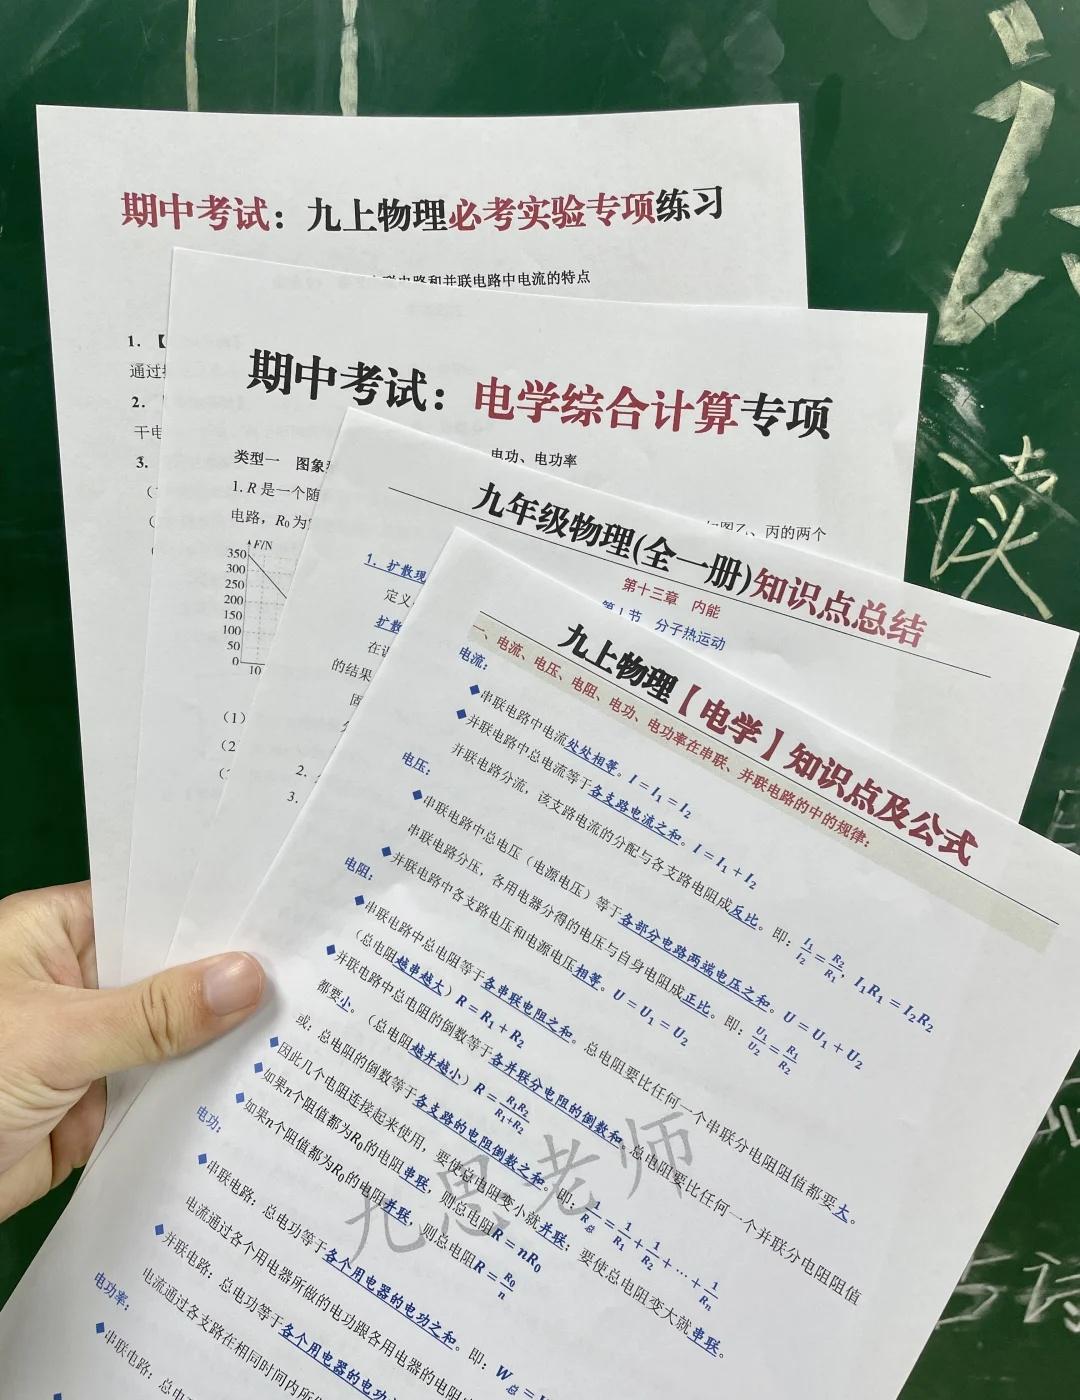 期中考试：九上物理必考实验专项练习
联电路和并联电路中电流的特点
1.【
通过
2.
干电
3.
期中考试：电学综合计算专项
类型一 图象
电功、电功率
1. R 是一个随
如图乙、丙的两个
电路，R₀为
F/N
350
300
250
200
150
100
50
0
10
(1)
(2
九年级物理(全一册)知识点总结
第十三章 内能
第1节 分子热运动
1. 扩散现
定义
扩散
在
的结果
固
2.
3.
九上物理【电学】知识点及公式
一、电流、电压、电阻、电功、电功率在串联、并联电路的中的规律：
电流：
◆串联电路中电流处处相等。I = I₁ = I₂
◆并联电路中总电流等于各支路电流之和。I = I₁ + I₂
并联电路分流，该支路电流的分配与各支路电阻成反比。即：I₁/I₂ = R₂/R₁, I₁R₁ = I₂R₂
电压：
◆串联电路中总电压（电源电压）等于各部分电路两端电压之和。U = U₁ + U₂
串联电路分压，各用电器分得的电压与自身电阻成正比。即：U₁/U₂ = R₁/R₂
◆并联电路中各支路电压和电源电压相等。U = U₁ = U₂
电阻：
◆串联电路中总电阻等于各串联电阻之和。总电阻要比任何一个串联分电阻阻值都要大。
（总电阻越串越大）R = R₁ + R₂
◆并联电路中总电阻的倒数等于各并联分电阻的倒数和。总电阻要比任何一个并联分电阻阻值
都要小。（总电阻越并越小）R = R₁R₂/R₁+R₂
或：总电阻的倒数等于各支路的电阻倒数之和。即：1/R总 = 1/R₁ + 1/R₂ + … + 1/Rₙ
◆因此几个电阻连接起来使用，要使总电阻变小就并联；要使总电阻变大就串联。
◆如果n个阻值都为R₀的电阻串联，则总电阻R = nR₀
◆如果n个阻值都为R₀的电阻并联，则总电阻R = R₀/n
电功：
◆串联电路：总电功等于各个用电器的电功之和。即：W总 =
电流通过各个用电器所做的电功跟各用电器的电阻
◆并联电路：总电功等于各个用电器的电功
电流通过各支路在相同时间内所
电功率：
◆串联电路：总电
九思老师
读